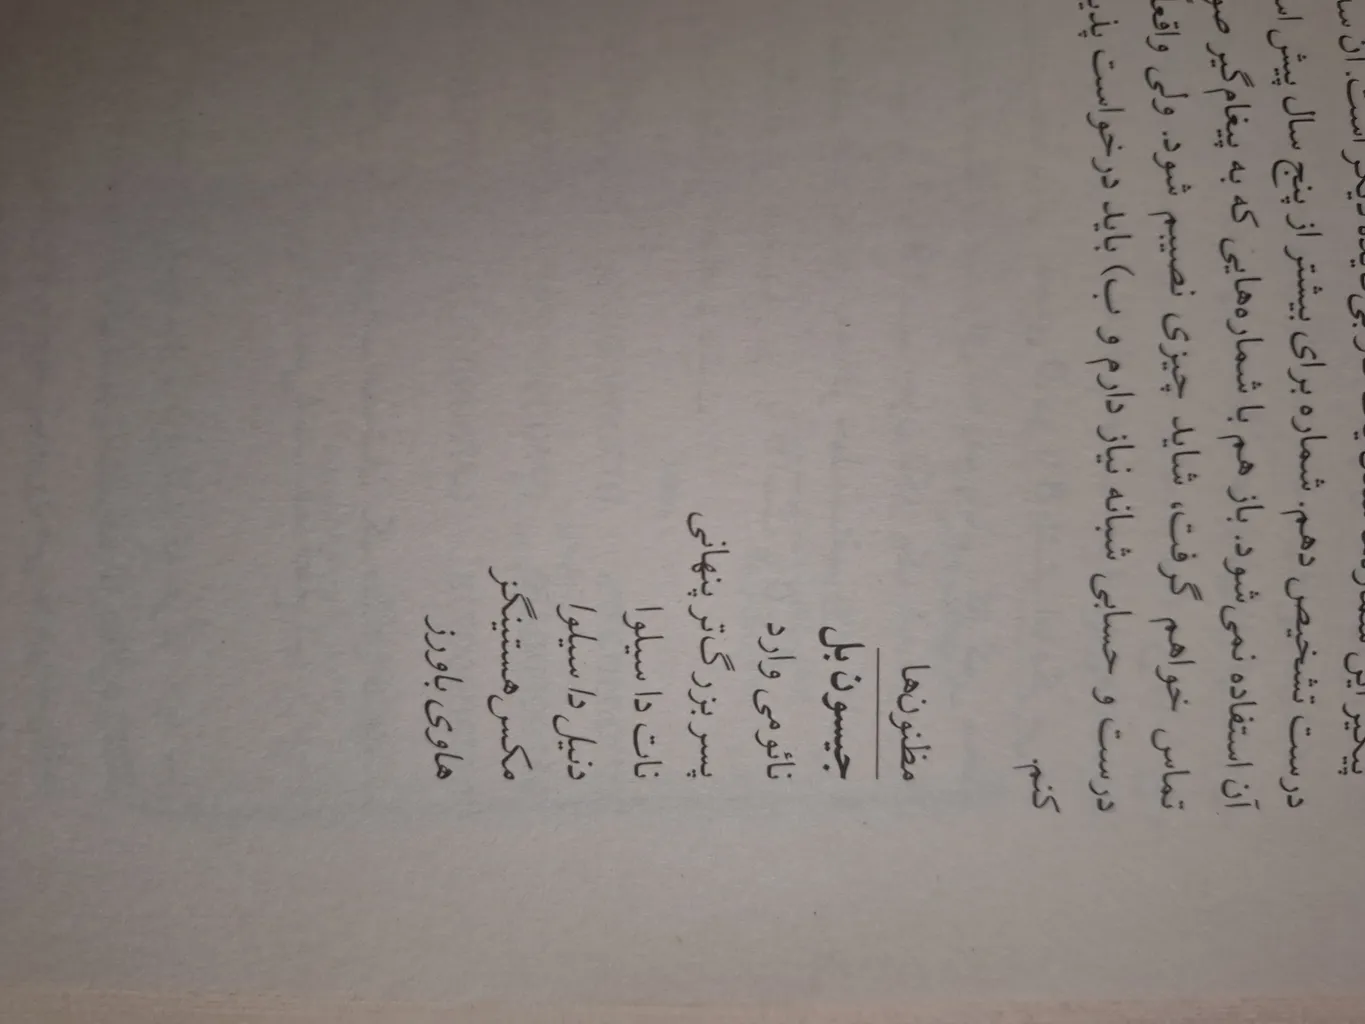 درست تشخیص دهم. شماره برای بیشتر از پنج سال پیش
آن استفاده نمی‌شود. باز هم با شماره‌هایی که به پیغام‌گیر
تماس خواهم گرفت، شاید چیزی نصیبم شود. ولی
درست و حسابی شبانه نیاز دارم و ب) باید درخواست
کنم.
مظنون‌ها
جیسون بل
نائومی وارد
پسر بزرگ‌تر پنهانی
نات دا سیلوا
دنیل دا سیلوا
مکس هستینگز
هاوی باورز